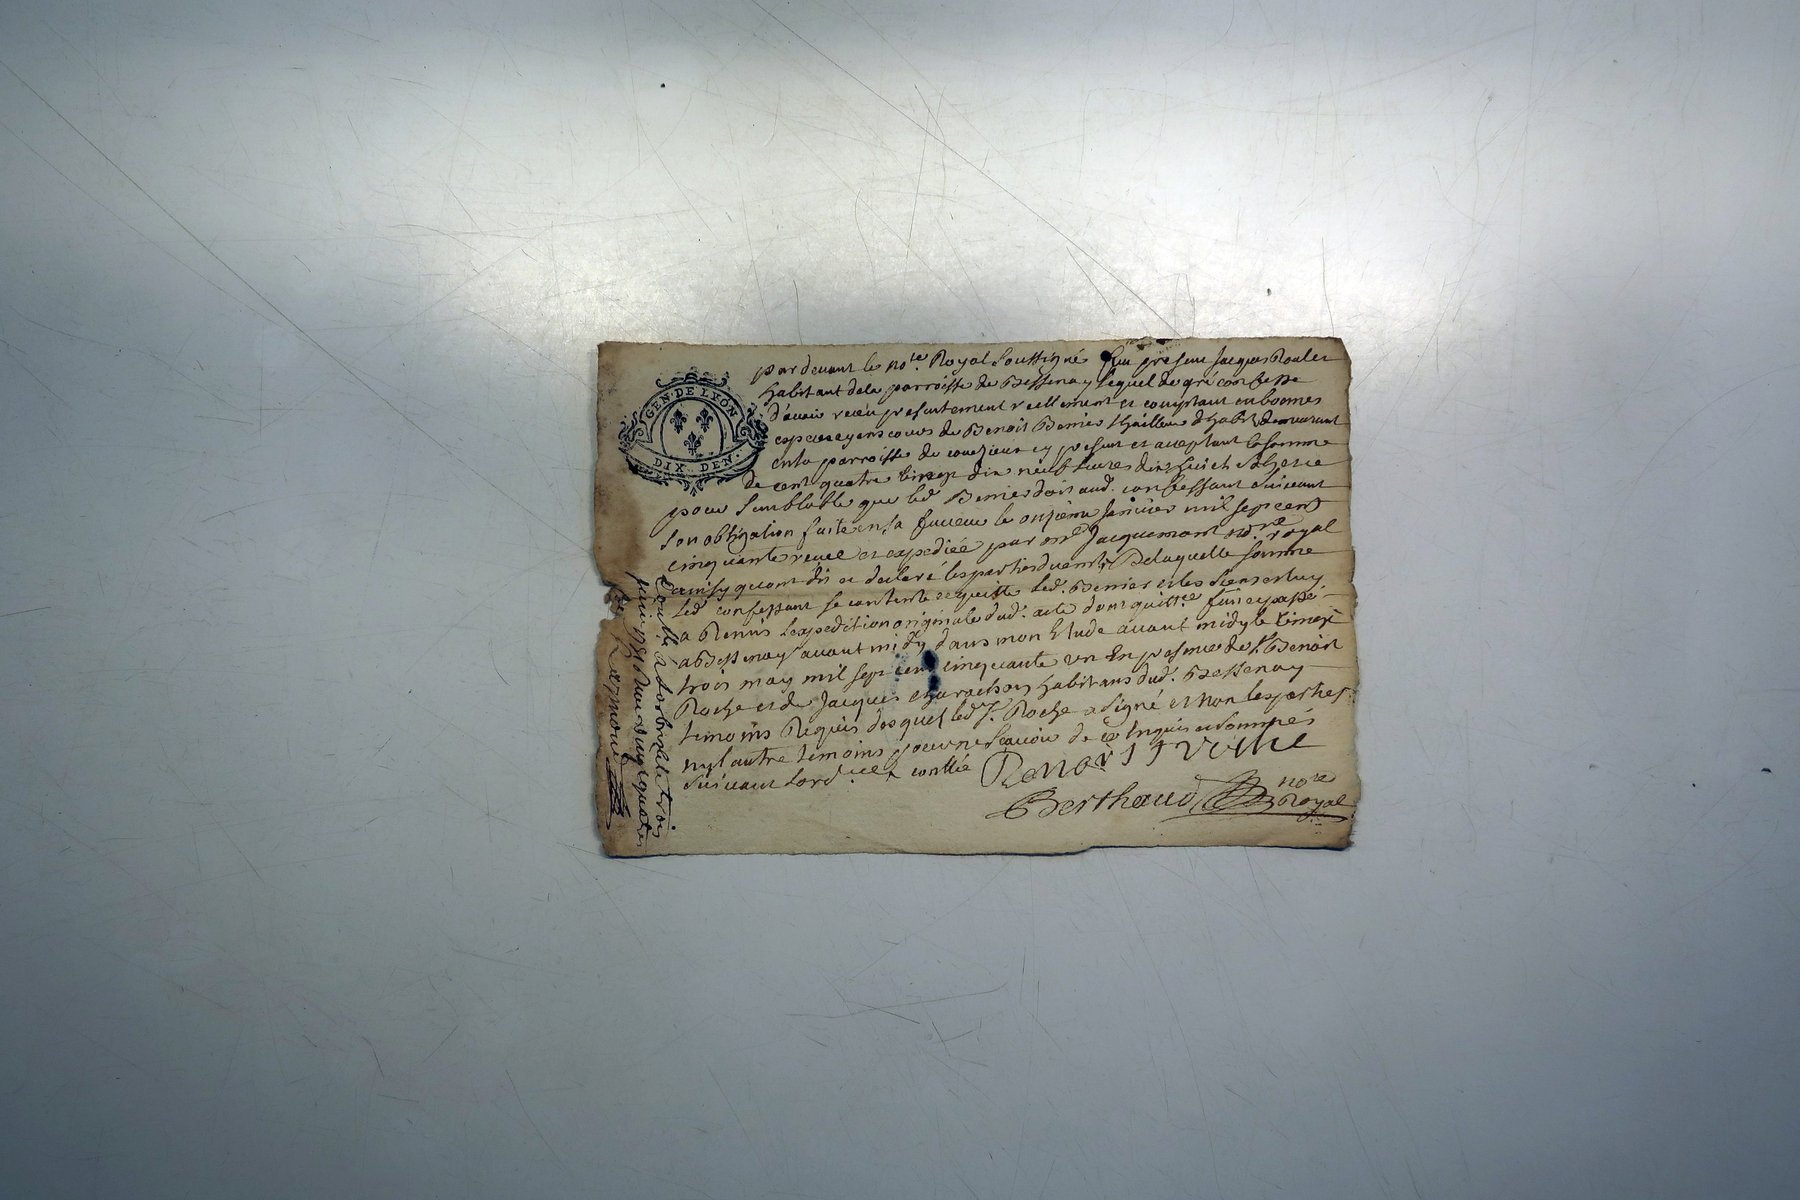 GEN. DE LYON
DIX. DEN.
par devant le no.re Royal Soussigné fut present Jacques
habitant dela parroisse de Bessenay lequel de gré confesse
d'avoir receu presentement reellement et comptant en bonnes
especes ayens cours de Benoit Bernier thailleur d'habit demeurant
en la parroisse de courzieux cy present et acceptant la somme
de cent quatre vingt dix neuf livres dix huict sols
pour semblable que led. Bernier doit aud. confessant suivant
son obligation faite en sa faveur le onzieme janvier mil sept cent
cinquante receue et expediée par me Jacquemont no.re royal
ainsy quont dit et declaré les parties Delaquelle somme
led. confessant se contente et quitte led. Bernier et les siens et luy
a Remis lexpedition originale dud. acte dont quitt.ce fait et passé
a Bessenay avant midy dans mon Etude avant midy le
trois may mil sept cent cinquante un En presence de S.r Benoit
Roche et de Jacques habitans dud. Bessenay
temoins Requis desquels led. S.r Roche a signé et non les parties
ny l'autre temoins pour ne scavoir de ce Enquis et sommés
suivant lord.ce
Berthaud no.re
Royal
a Larbresle le trois
juin 1751